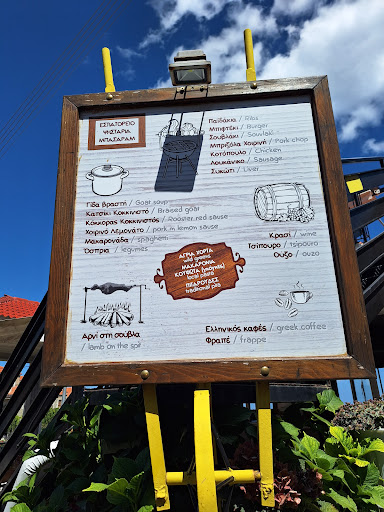 ΕΣΤΙΑΤΟΡΕΙΟ
ΨΗΣΤΑΡΙΑ
ΜΠΑΣΑΡΑΜ
Παϊδάκια / Ribs
Μπιφτέκι / Burger
Σουβλάκι / Souvlaki
Μπριζόλα Χοιρινή / Pork chop
Κοτόπουλο / Chicken
Λουκάνικο / Sausage
Συκώτι / Liver
Γίδα βραστή / Goat soup
Κατσίκι Κοκκινιστό / Braised goat
Κόκκορας Κοκκινιστός / Rooster red sause
Χοιρινό Λεμονάτο / pork in lemon sauce
Μακαρονάδα / spaghetti
Όσπρια / legumes
Κρασί / wine
Τσίπουρο / tsipouro
Ούζο / ouzo
ΑΓΡΙΑ ΧΟΡΤΑ
wild greens
ΜΑΚΑΡΟΝΙΑ
local pasta
traditional pies
Αρνί στη σούβλα
/ lamb on the spit
Ελληνικός καφές / greek coffee
Φραπέ / frappe